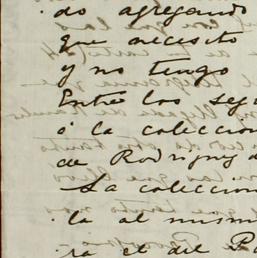 do agregando
que necesito
y no tengo
Entre los seg
ó la coleccion
de Rodriguez d
La coleccion
la al mism
ra el del Pa